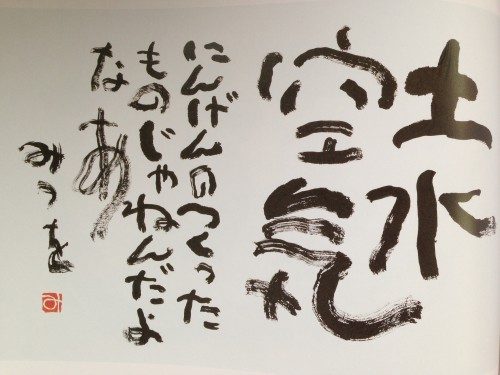 土水
空気
にんげんのつくった
ものじゃねんだよ
なあ
みつを